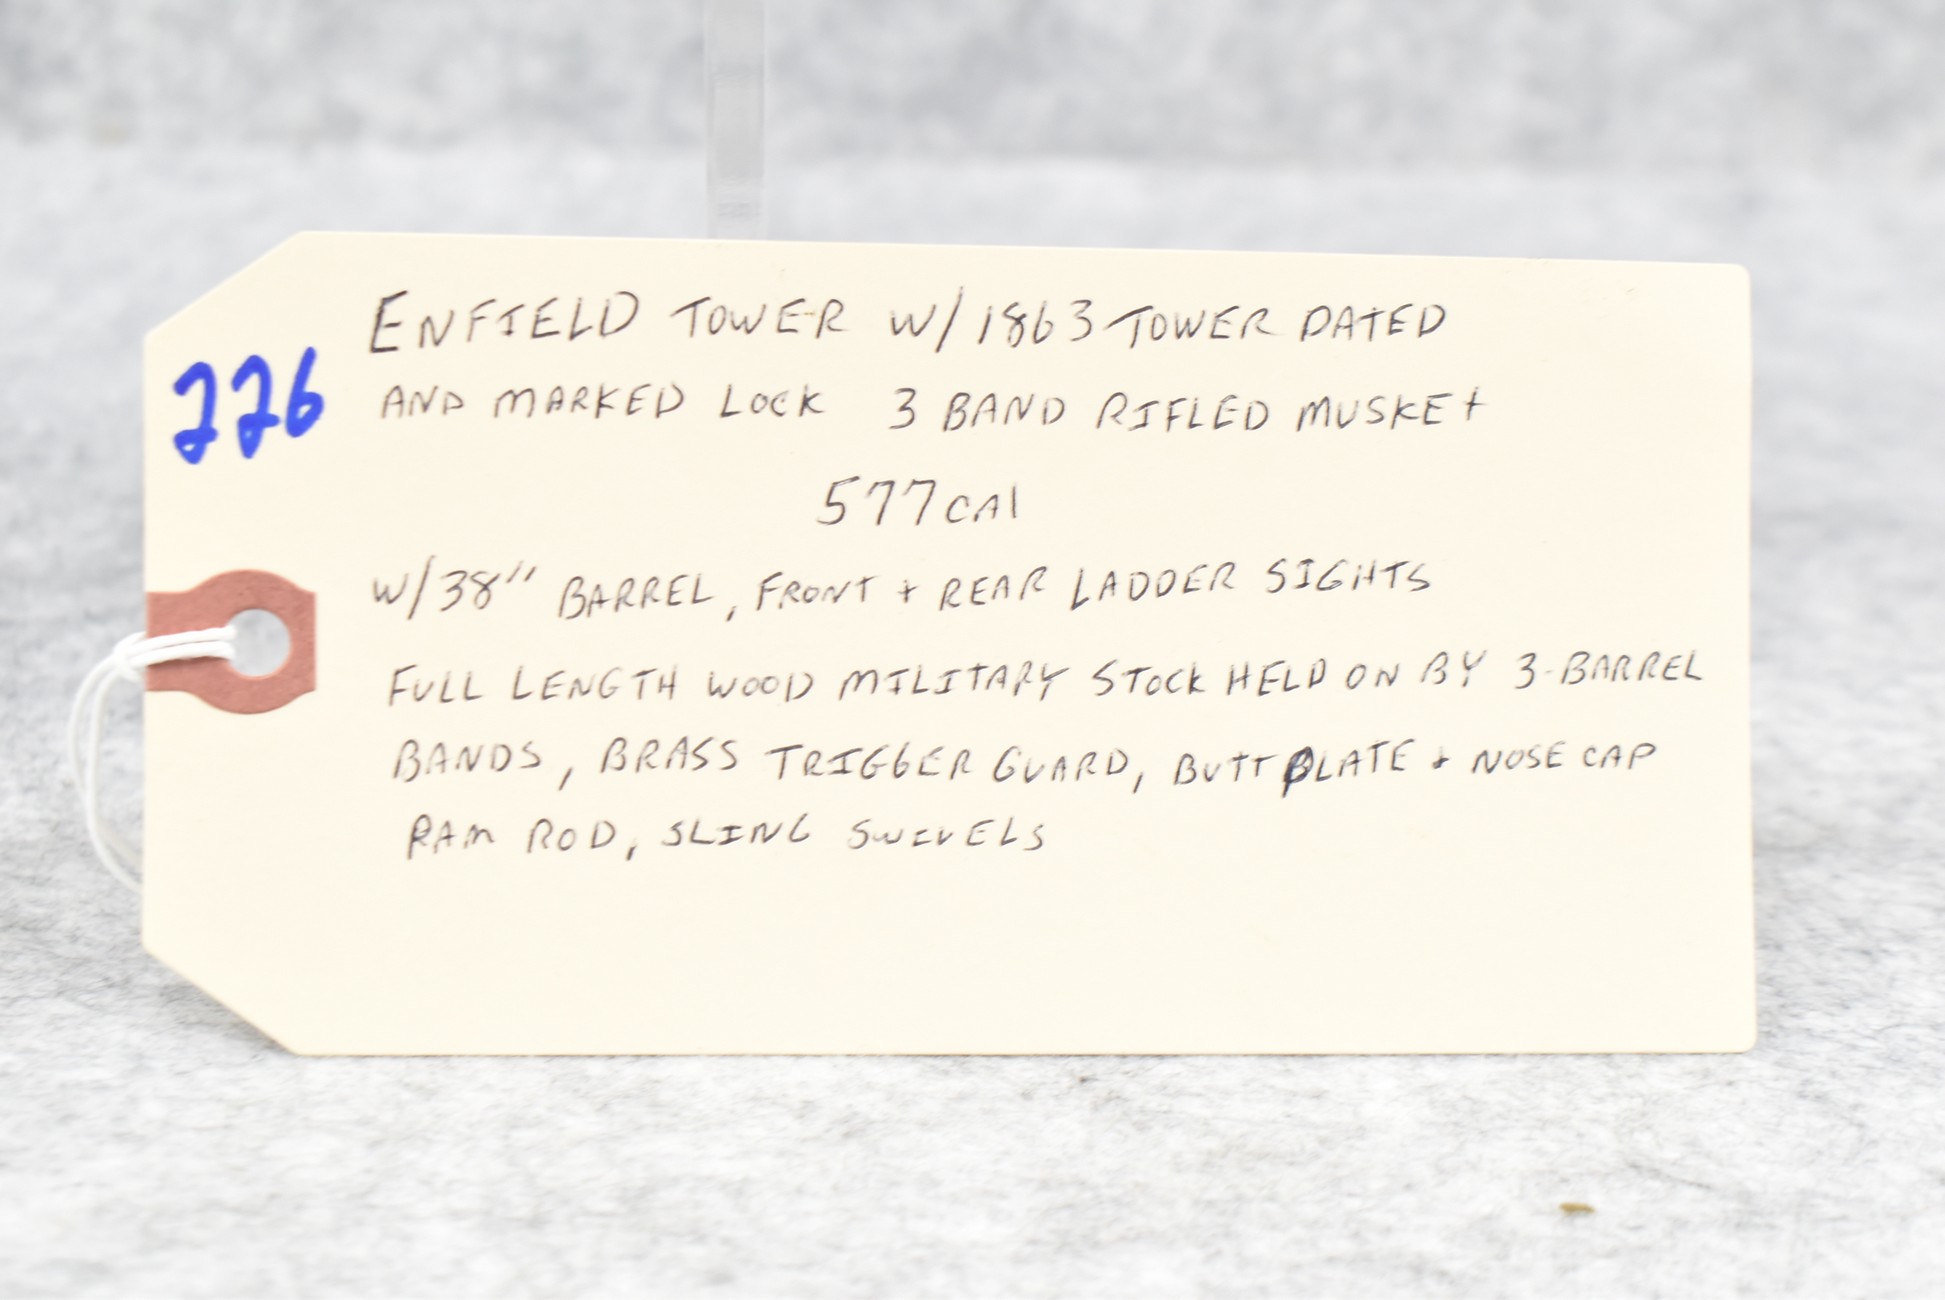 226
ENFIELD TOWER W/ 1863 TOWER DATED
AND MARKED LOCK 3 BAND RIFLED MUSKEt
577 CAl
W/38" BARREL, FRONT + REAR LADDER SIGHTS
FULL LENGTH WOOD MILITARY STOCK HELD ON BY 3-BARREL
BANDS, BRASS TRIGGER GUARD, BUTT PLATE + NOSE CAP
RAM ROD, SLING SWIVELS